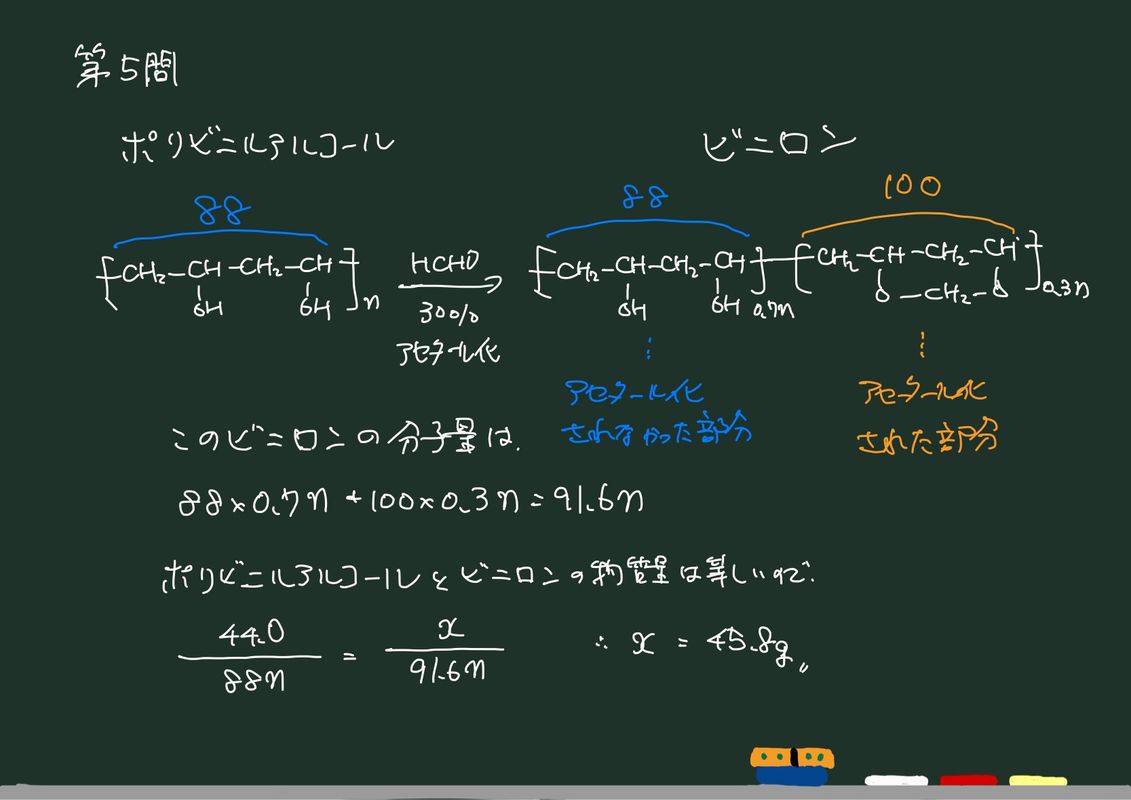 第5問
ポリビニルアルコール
ビニロン
88
88
100
[CH₂-CH-CH₂-CH]n
OH OH
HCHO
30%
アセタール化
[CH₂-CH-CH₂-CH]0.7n[CH₂-CH-CH₂-CH]0.3n
OH OH O-CH₂-O
アセタール化
されなかった部分
アセタール化
された部分
このビニロンの分子量は、
88×0.7n+100×0.3n=91.6n
ポリビニルアルコールとビニロンの物質量は等しいので、
44.0/88n = x/91.6n ∴ x = 45.8g〃